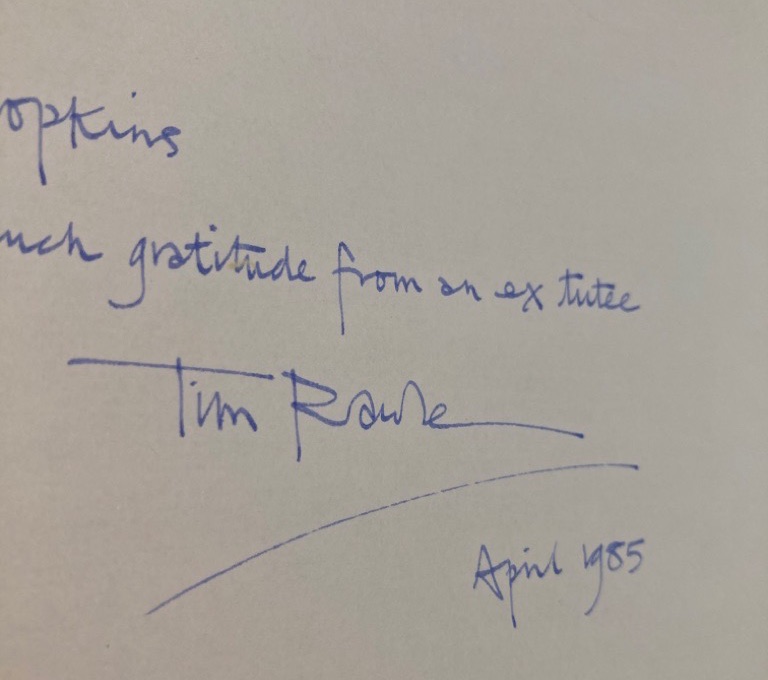 opkins
uch gratitude from an ex tutee
Tim Rawle
April 1985